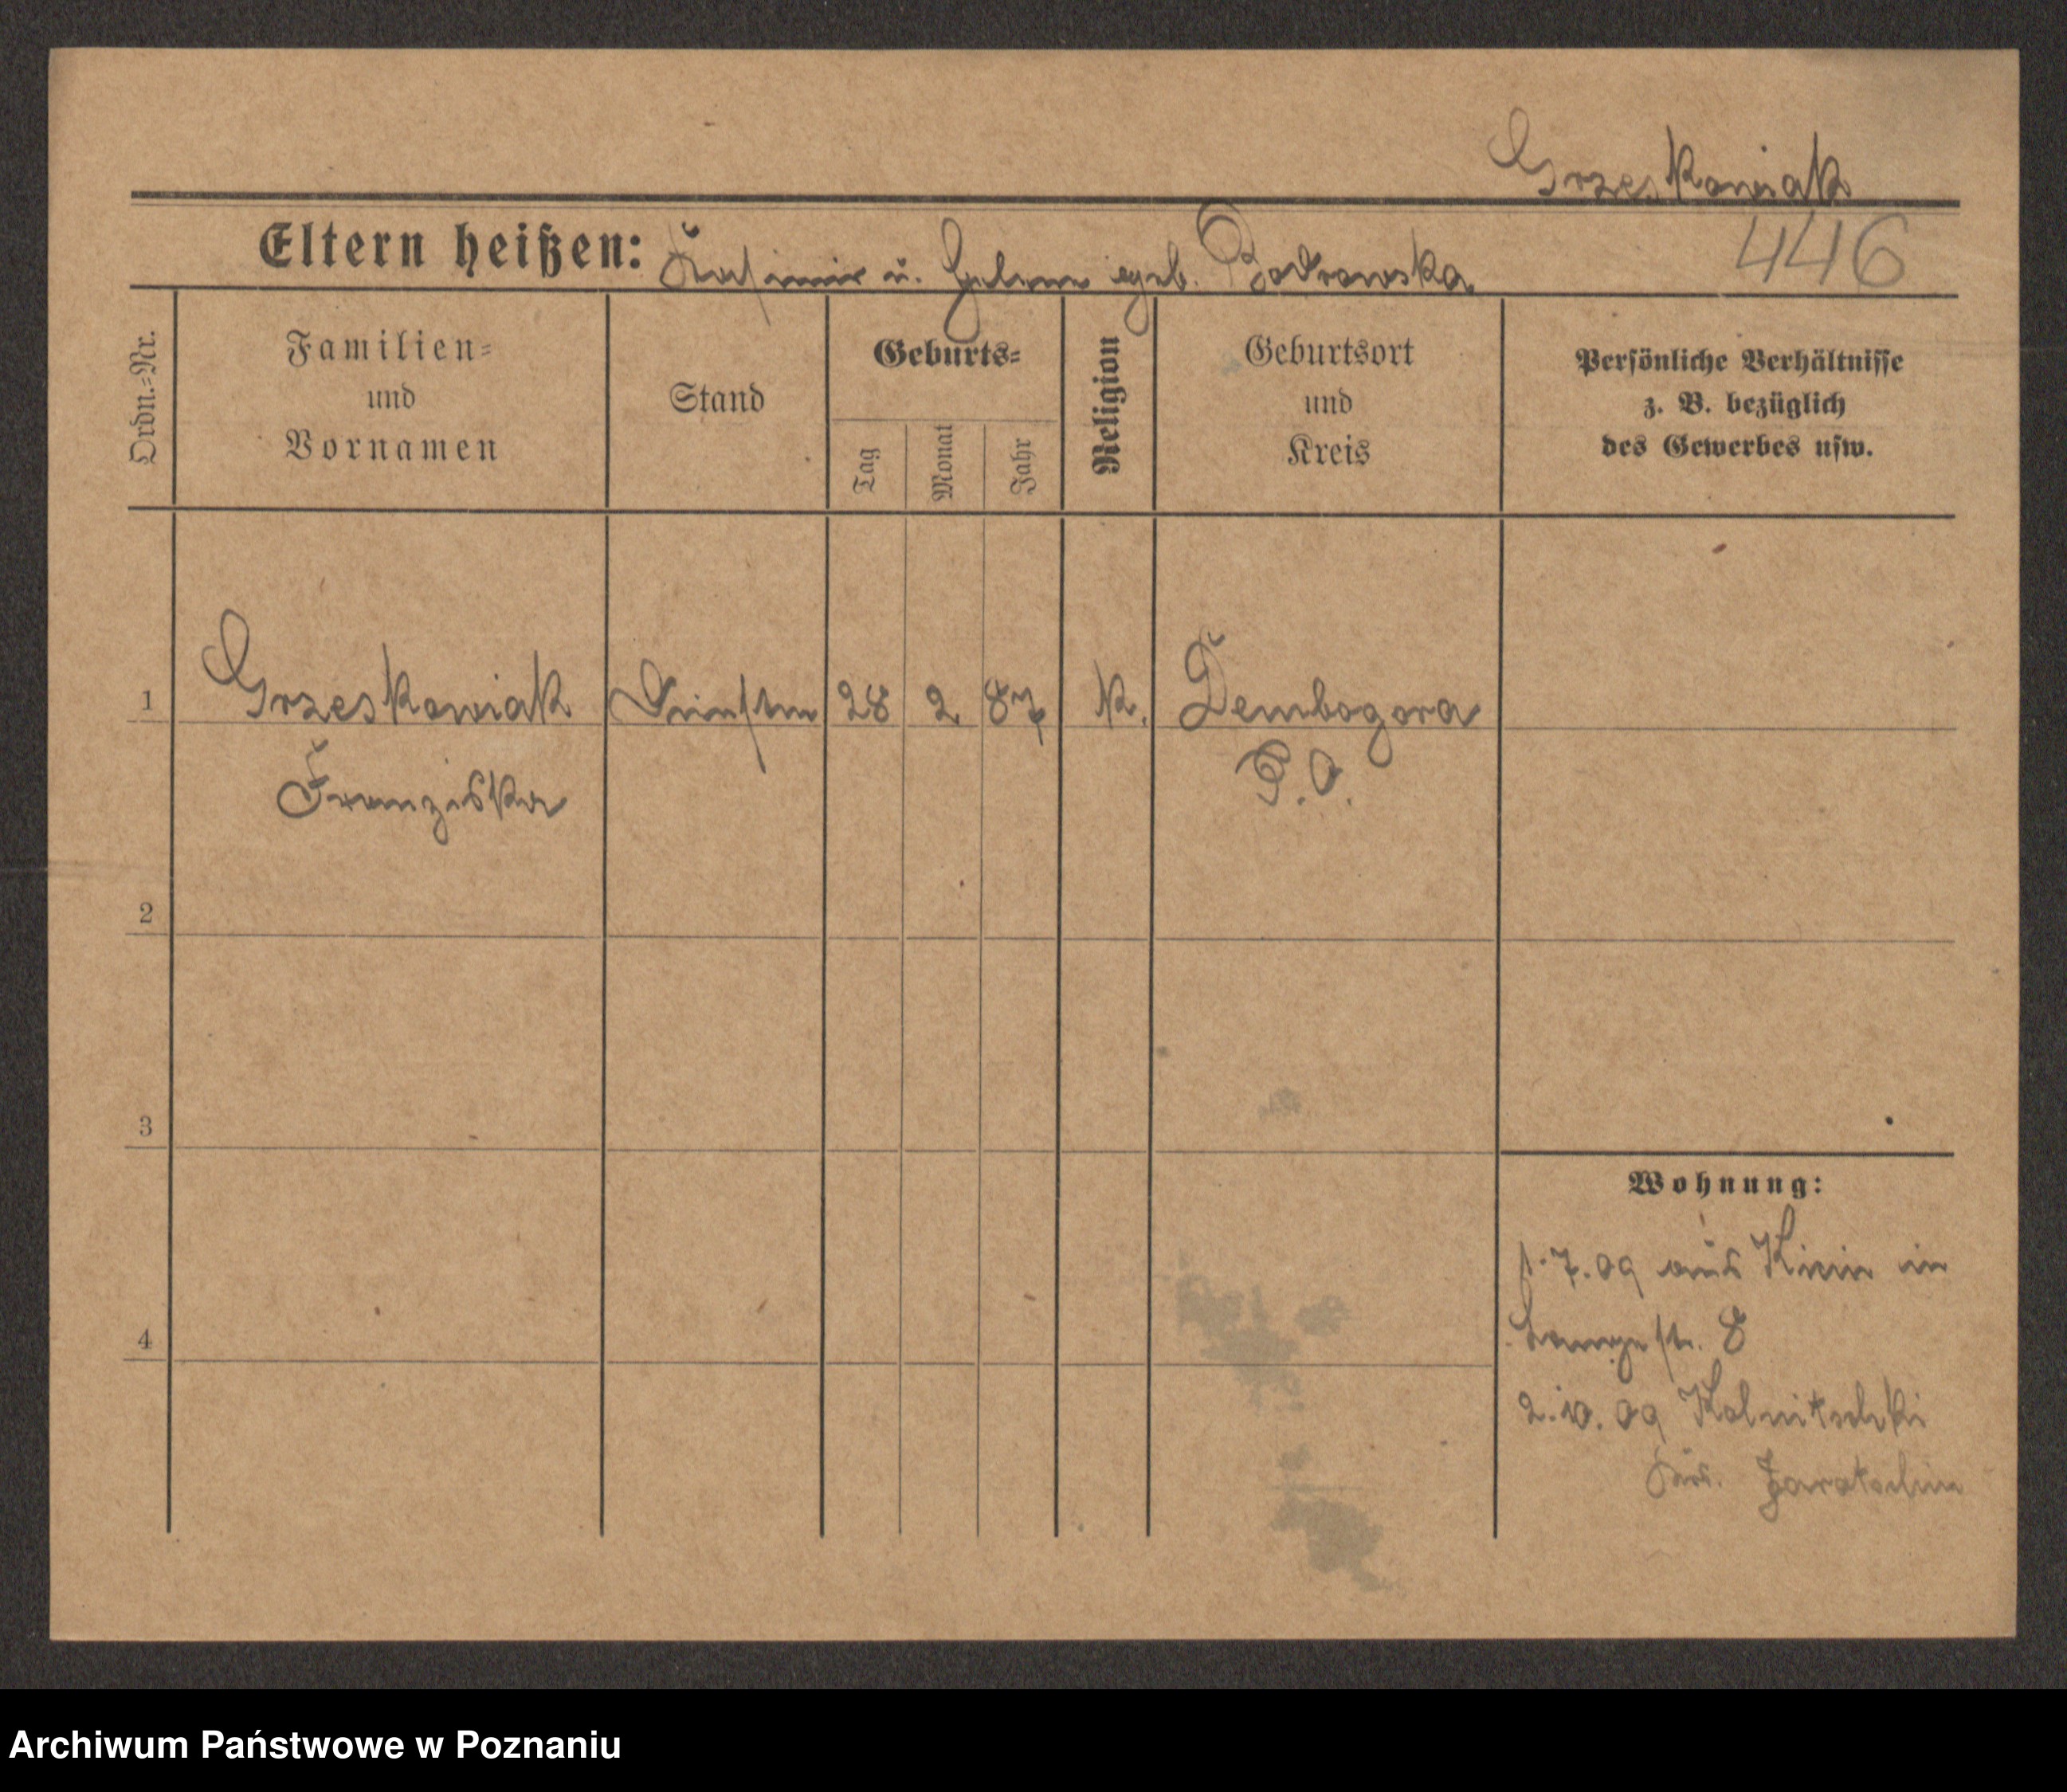 Grzeskowiak
Eltern heißen: Kasimir u. Helene geb. Bodrowska
446
Ordn.=Nr.
Familien=
und
Vornamen
Stand
Geburts=
Tag
Monat
Jahr
Religion
Geburtsort
und
Kreis
Persönliche Verhältnisse
z. B. bezüglich
des Gewerbes usw.
1 Grzeskowiak 28 2 87 K. Dembogora
Franziska P. O.
2
3
4
Wohnung:
1.7.09 aus Kicin in
Langestr. 8
2.10.09 Kolnitschki
Krs. Jarotschin
Archiwum Państwowe w Poznaniu